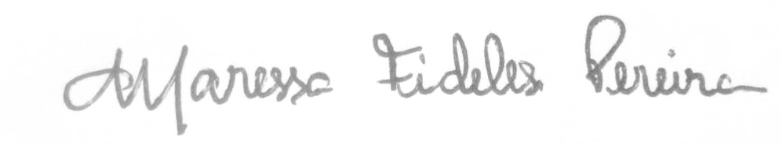 Maressa Fideles Pereira